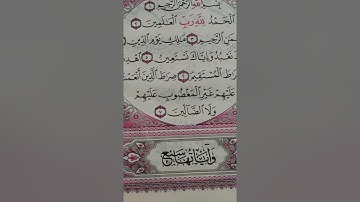 بِسْمِ اللَّهِ الرَّحْمَٰنِ الرَّحِيمِ ١
الْحَمْدُ لِلَّهِ رَبِّ الْعَالَمِينَ ٢
الرَّحِيمِ ٣ مَالِكِ يَوْمِ الدِّينِ
نَعْبُدُ وَإِيَّاكَ نَسْتَعِينُ ٥
الْمُسْتَقِيمَ ٦ صِرَاطَ الَّذِينَ أَنْعَمْتَ
عَلَيْهِمْ غَيْرِ الْمَغْضُوبِ عَلَيْهِمْ
وَلَا الضَّالِّينَ ٧
وَآيَاتُهَا سَبْعٌ